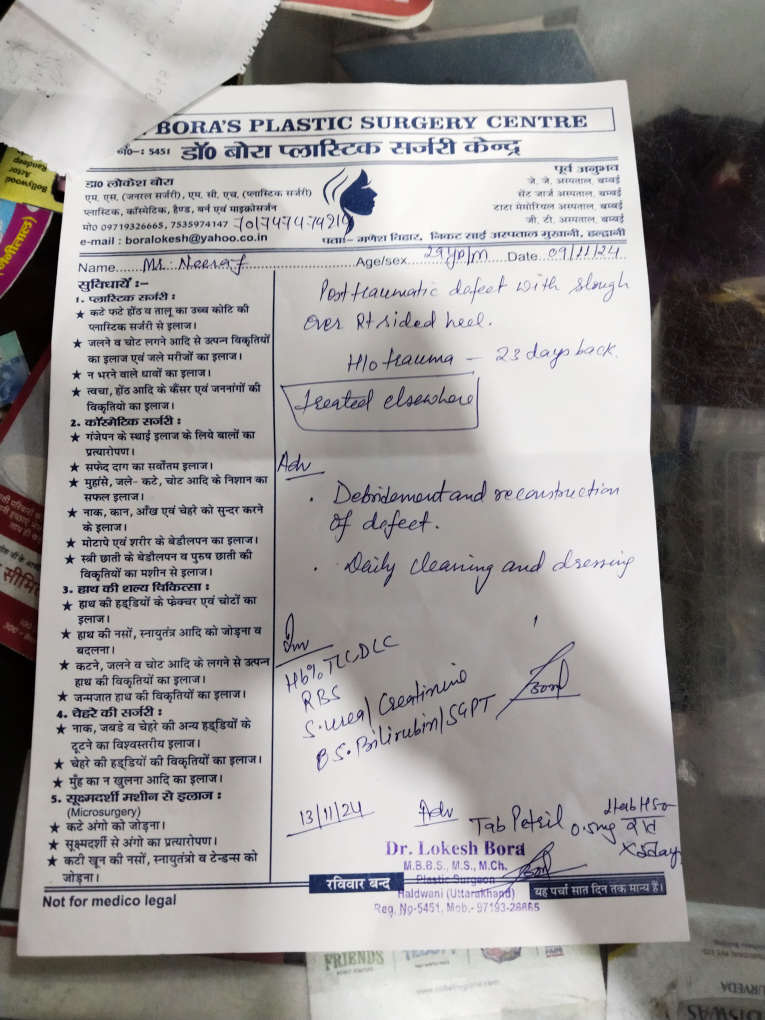 BORA'S PLASTIC SURGERY CENTRE
नं०-: 5451 डॉ० बोरा प्लास्टिक सर्जरी केन्द्र
डा० लोकेश बोरा
एम. एस. (जनरल सर्जरी), एम. सी. एच. (प्लास्टिक सर्जरी)
प्लास्टिक, कॉस्मेटिक, हैण्ड, बर्न एवं माइक्रोसर्जन
मो० 09719326665, 7535974147
e-mail : boralokesh@yahoo.co.in
पूर्व अनुभव
जे. जे. अस्पताल, बम्बई
सेंट जार्ज अस्पताल, बम्बई
टाटा मेमोरियल अस्पताल, बम्बई
जी. टी. अस्पताल, बम्बई
पताः- गणेश विहार, निकट साई अस्पताल मुखानी, हल्द्वानी
Name Mr. Neeraj Age/sex 29yo/m Date 09/11/24
सुविधायें :-
1. प्लास्टिक सर्जरी :
★ कटे फटे होंठ व तालू का उच्च कोटि की
प्लास्टिक सर्जरी से इलाज।
★ जलने व चोट लगने आदि से उत्पन विकृतियों
का इलाज एवं जले मरीजों का इलाज।
★ न भरने वाले घावों का इलाज।
★ त्वचा, होंठ आदि के कैंसर एवं जननांगों की
विकृतियो का इलाज।
2. कॉस्मेटिक सर्जरी :
★ गंजेपन के स्थाई इलाज के लिये बालों का
प्रत्यारोपण।
★ सफेद दाग का सर्वोतम इलाज।
★ मुहांसे, जले- कटे, चोट आदि के निशान का
सफल इलाज।
★ नाक, कान, आँख एवं चेहरे को सुन्दर करने
के इलाज।
★ मोटापे एवं शरीर के बेडौलपन का इलाज।
★ स्त्री छाती के बेडौलपन व पुरुष छाती की
विकृतियों का मशीन से इलाज।
3. हाथ की शल्य चिकित्सा :
★ हाथ की हड्डियों के फ्रेक्चर एवं चोटों का
इलाज।
★ हाथ की नसों, स्नायुतंत्र आदि को जोड़ना व
बदलना।
★ कटने, जलने व चोट आदि के लगने से उत्पन
हाथ की विकृतियों का इलाज।
★ जन्मजात हाथ की विकृतियों का इलाज।
4. चेहरे की सर्जरी :
★ नाक, जबडे व चेहरे की अन्य हड्डियों के
टूटने का विश्वस्तरीय इलाज।
★ चेहरे की हड्डियों की विकृतियों का इलाज।
★ मुँह का न खुलना आदि का इलाज।
5. सूक्ष्मदर्शी मशीन से इलाज :
(Microsurgery)
★ कटे अंगो को जोड़ना।
★ सूक्ष्मदर्शी से अंगो का प्रत्यारोपण।
★ कटी खून की नसों, स्नायुतंत्रो व टेन्डन्स को
जोड़ना।
Post traumatic defect with slough
over Rt sided heel.
H/o trauma - 23 days back.
treated elsewhere
Adv
. Debridement and reconstruction
of defect.
. Daily cleaning and dressing
Inv
Hb% TLC DLC
RBS
S. urea/ Creatinine
S. Bilirubin/SGPT
13/11/24 Adv Tab Petril 0.5mg
x 5days
Dr. Lokesh Bora
M.B.B.S., M.S., M.Ch.
Plastic Surgeon
Haldwani (Uttarakhand)
Reg. No-5451, Mob.- 97193-26665
रविवार बन्द
यह पर्चा सात दिन तक मान्य हैं।
Not for medico legal
FRIENDS